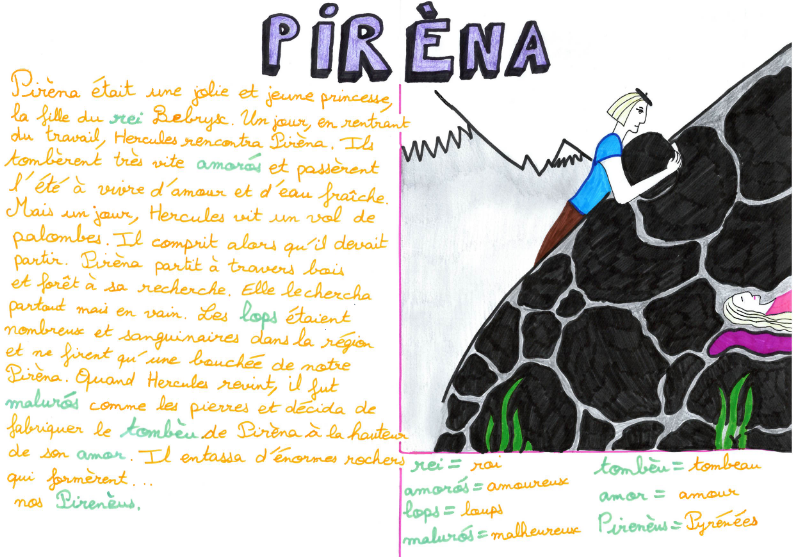 PIRÈNA
Pirèna était une jolie et jeune princesse,
la fille du rei Bebryx. Un jour, en rentrant
du travail, Hercules rencontra Pirèna. Ils
tombèrent très vite amorós et passèrent
l'été à vivre d'amour et d'eau fraîche.
Mais un jour, Hercules vit un vol de
palombes. Il comprit alors qu'il devait
partir. Pirèna partit à travers bois
et forêt à sa recherche. Elle le chercha
partout mais en vain. Les lops étaient
nombreux et sanguinaires dans la région
et ne firent qu'une bouchée de notre
Pirèna. Quand Hercules revint, il fut
malurós comme les pierres et décida de
fabriquer le tombèu de Pirèna à la hauteur
de son amor. Il entassa d'énormes rochers
qui formèrent...
nos Pirenèus.
rei = roi
amorós = amoureux
lops = loups
malurós = malheureux
tombèu = tombeau
amor = amour
Pirenèus = Pyrénées